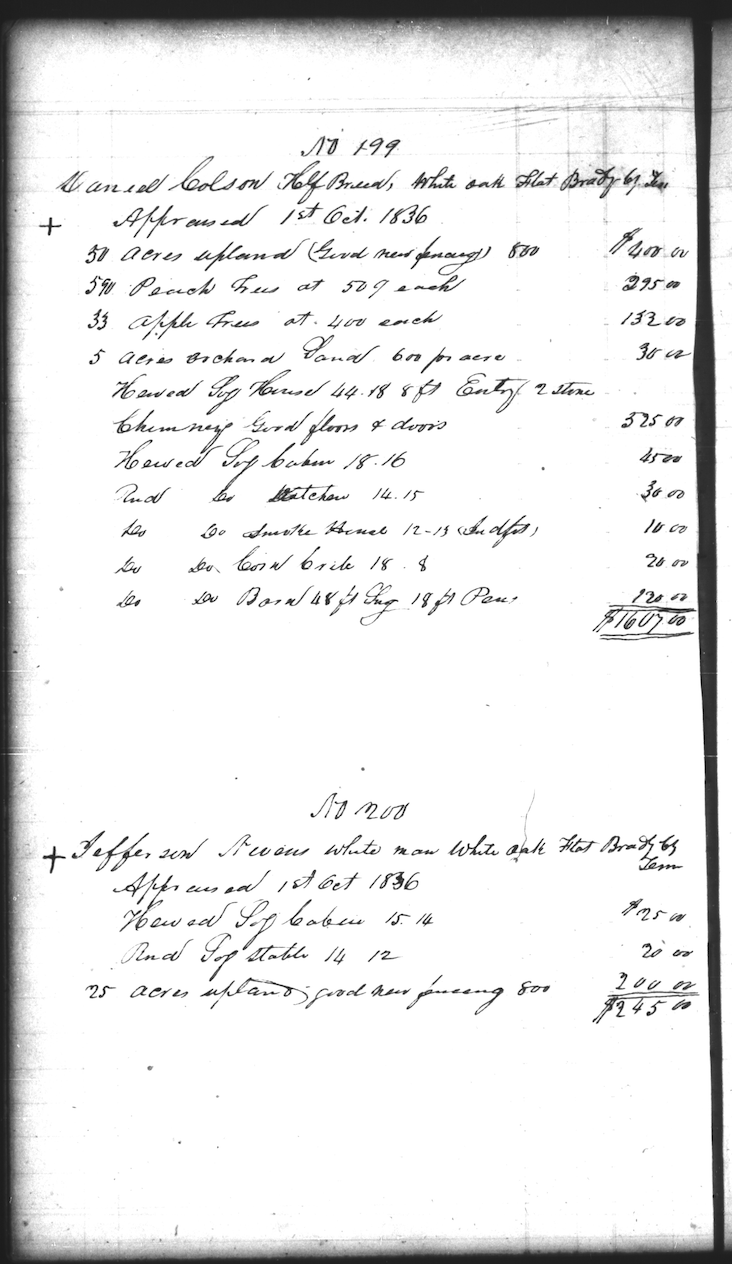 No 199
Daniel Colson Hlf Breed, White oak Flat Brady Cy Ten
+ Appraised 1st Oct. 1836
50 Acres upland (Good new fencing) 800 $400 00
590 Peach Trees at 50¢ each 295 00
33 Apple Trees at 400 each 132 00
5 Acres orchard Land 600 pr acre 30 00
Hewed Log House 44.18 8 ft Entry 2 stone
Chimneys Good floors & doors 525 00
Hewed Log Cabin 18.16 45 00
Rnd Do Kitchen 14.15 30 00
Do Do Smoke House 12-13 10 00
Do Do Corn Crib 18.8 20 00
Do Do Barn 48 ft Lng 18 ft Pens 120 00
$1607 00
No 200
+ Jefferson Nevans White man White oak Flat Brady Cy
Tenn
Appraised 1st Oct 1836
Hewed Log Cabin 15.14 $25 00
Rnd Log stable 14 12 20 00
25 Acres upland, good new fencing 800 200 00
$245 00